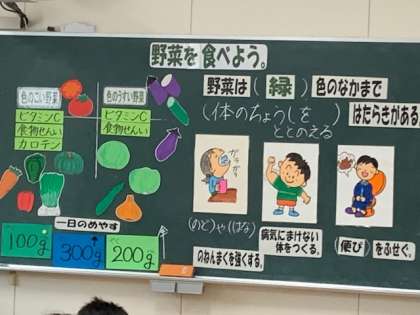 野菜を食べよう。
色のこい野菜
ビタミンC
食物せんい
カロテン
色のうすい野菜
ビタミンC
食物せんい
一日のめやす
100g
300g
200g
野菜は(緑)色のなかまで
(体のちょうしをととのえる)はたらきがある。
ガラガラ
(のど)や(はな)
のねんまくを強くする。
病気にまけない
体をつくる。
(便ぴ)
をふせぐ。